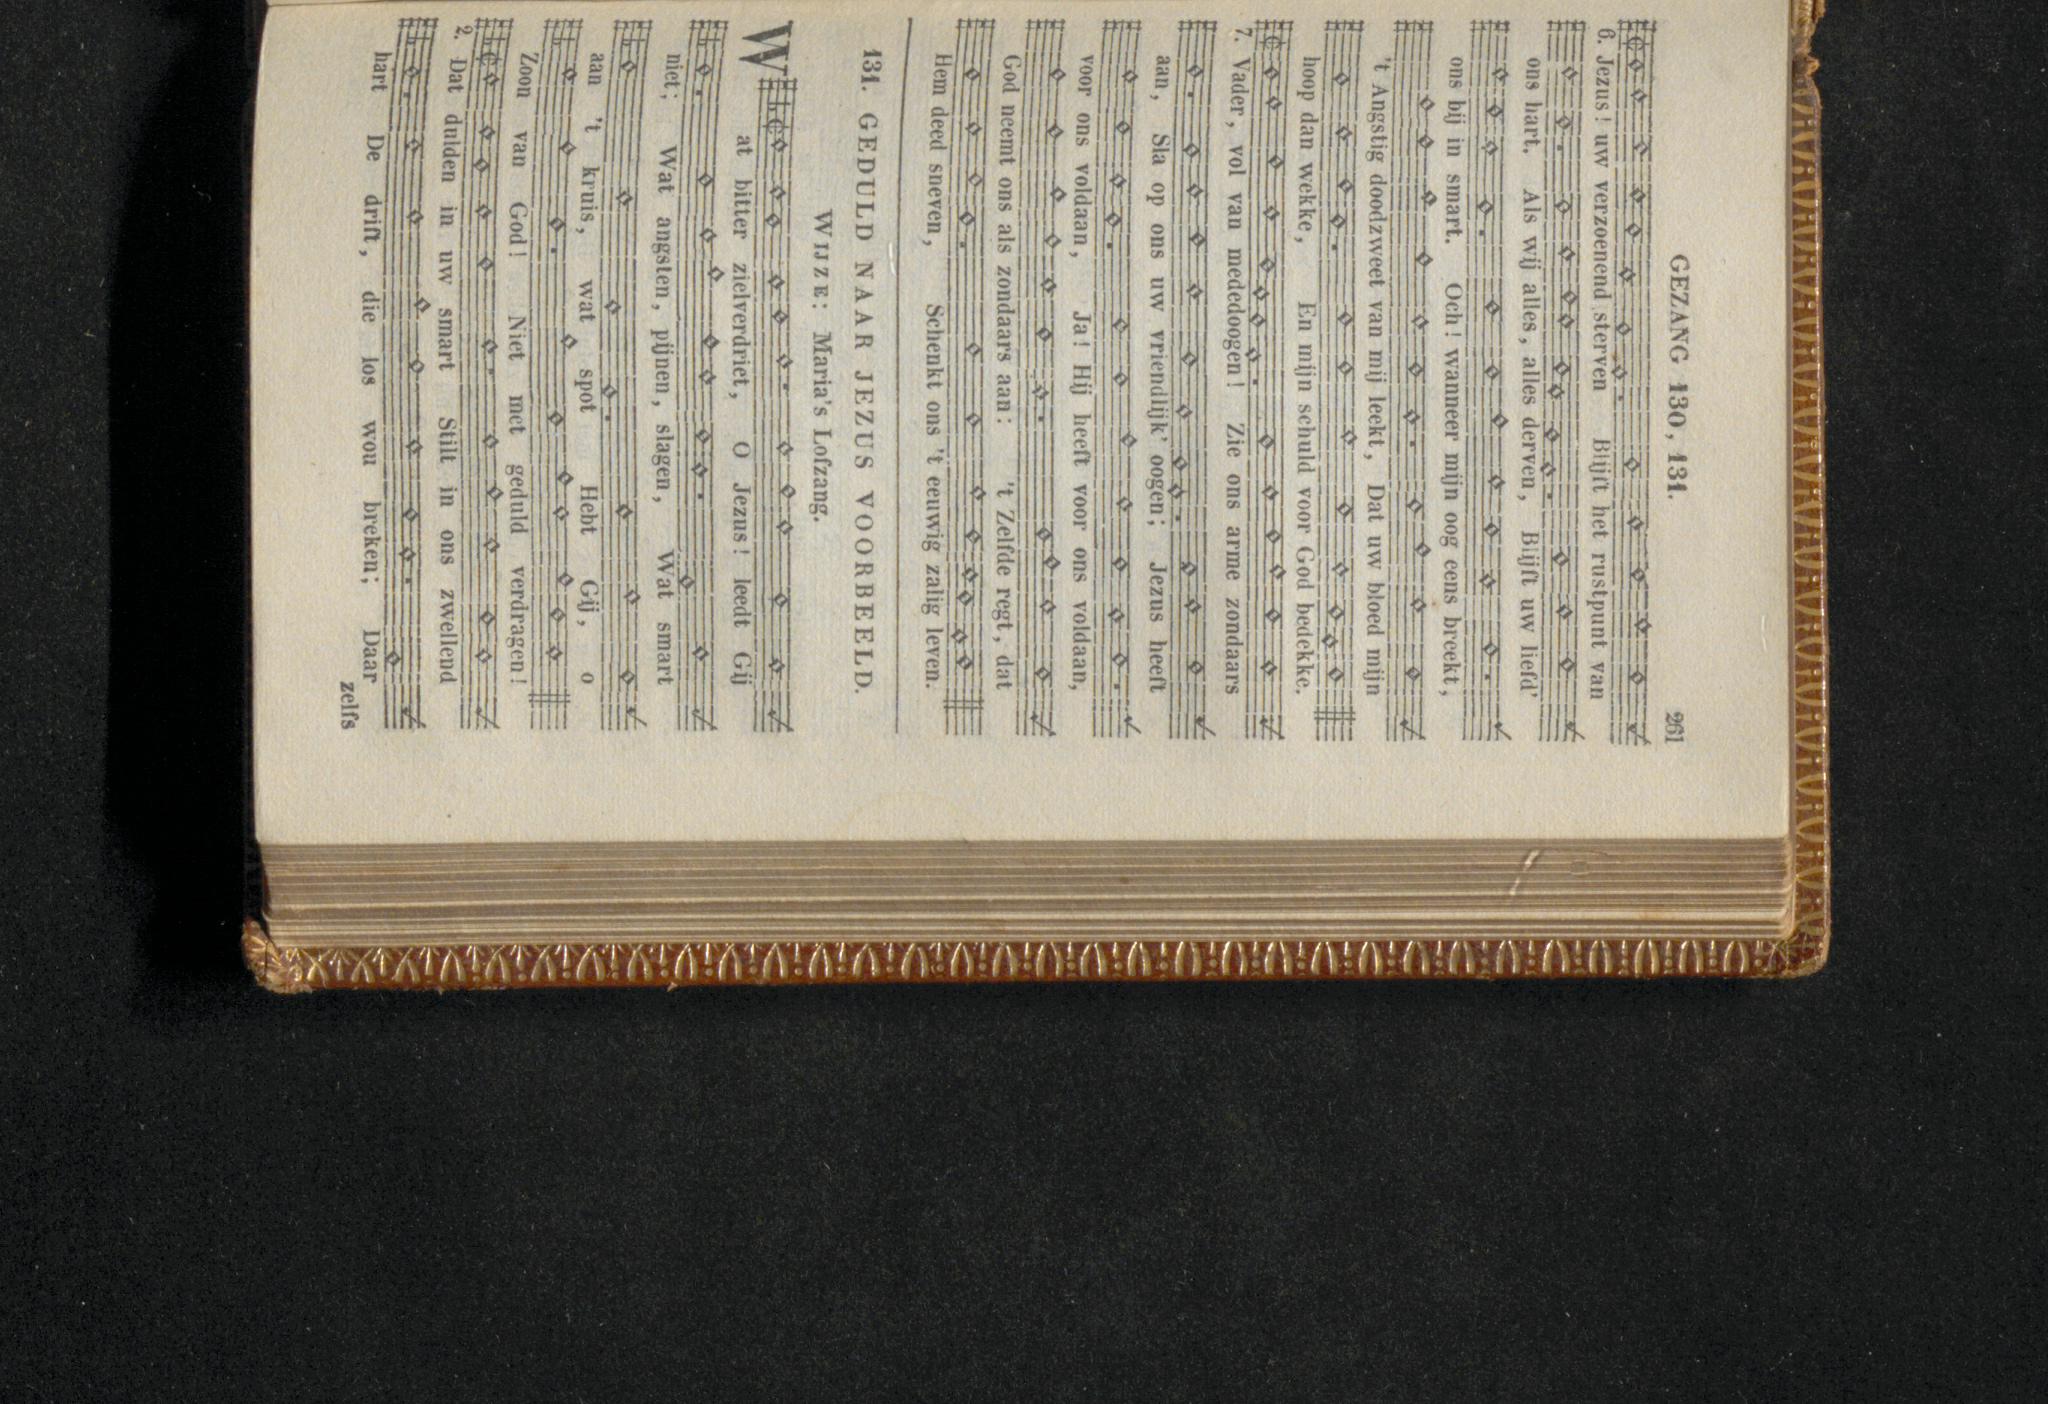 GEZANG 130, 131. 261
6. Jezus! uw verzoenend sterven Blijft het rustpunt van
ons hart. Als wij alles, alles derven, Blijft uw liefd'
ons bij in smart. Och! wanneer mijn oog eens breekt,
't Angstig doodzweet van mij leekt, Dat uw bloed mijn
hoop dan wekke, En mijn schuld voor God bedekke.
7. Vader, vol van mededoogen! Zie ons arme zondaars
aan, Sla op ons uw vriendlijk' oogen; Jezus heeft
voor ons voldaan, Ja! Hij heeft voor ons voldaan,
God neemt ons als zondaars aan: 't Zelfde regt, dat
Hem deed sneven, Schenkt ons 't eeuwig zalig leven.
131. GEDULD NAAR JEZUS VOORBEELD.
WIJZE: Maria's Lofzang.
Wat bitter zielverdriet, O Jezus! leedt Gij
niet; Wat angsten, pijnen, slagen, Wat smart
aan 't kruis, wat spot Hebt Gij, o
Zoon van God! Niet met geduld verdragen!
2. Dat dulden in uw smart Stilt in ons zwellend
hart De drift, die los wou breken; Daar
zelfs